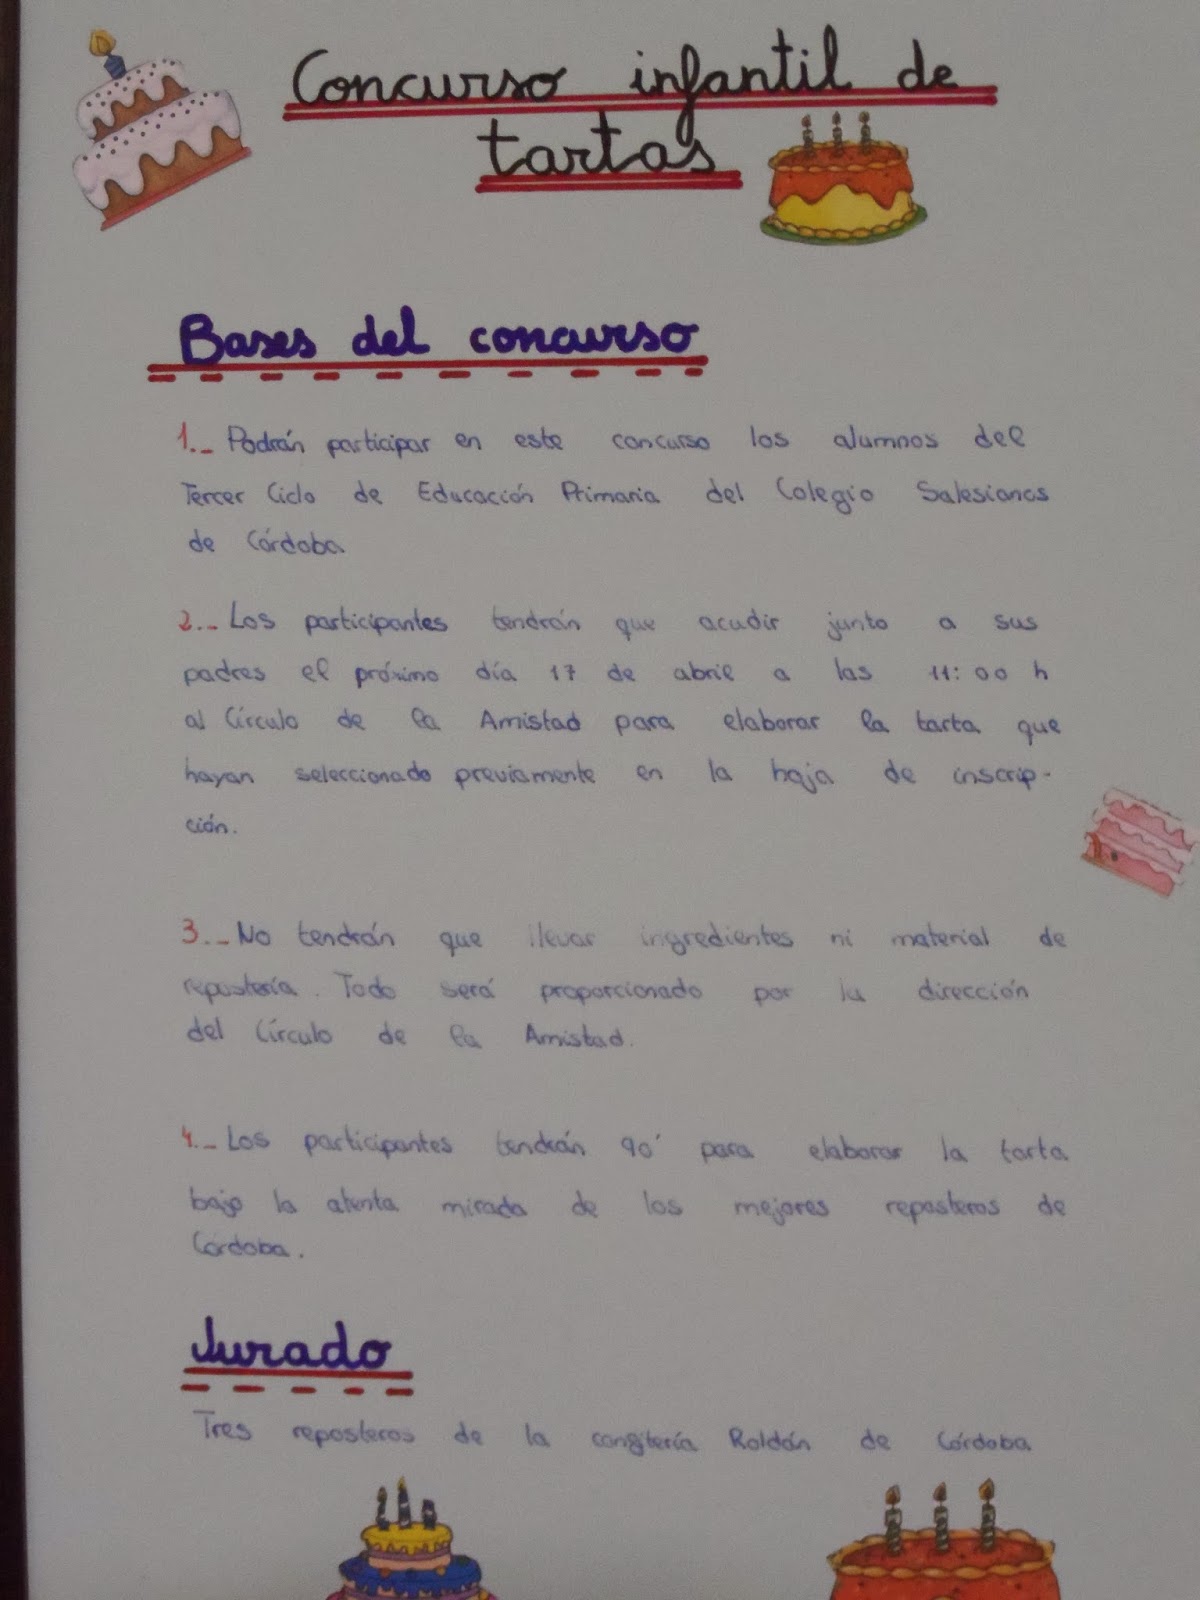 Concurso infantil de
tartas
Bases del concurso
1._ Podrán participar en este concurso los alumnos del
Tercer Ciclo de Educación Primaria del Colegio Salesianos
de Córdoba
2._ Los participantes tendrán que acudir junto a sus
padres el próximo día 17 de abril a las 11:00 h
al Círculo de la Amistad para elaborar la tarta que
hayan seleccionado previamente en la hoja de inscrip-
ción.
3._ No tendrán que llevar ingredientes ni material de
repostería. Todo será proporcionado por la dirección
del Círculo de la Amistad.
4._ Los participantes tendrán 90' para elaborar la tarta
bajo la atenta mirada de los mejores reposteros de
Córdoba.
Jurado
Tres reposteros de la confitería Roldán de Córdoba